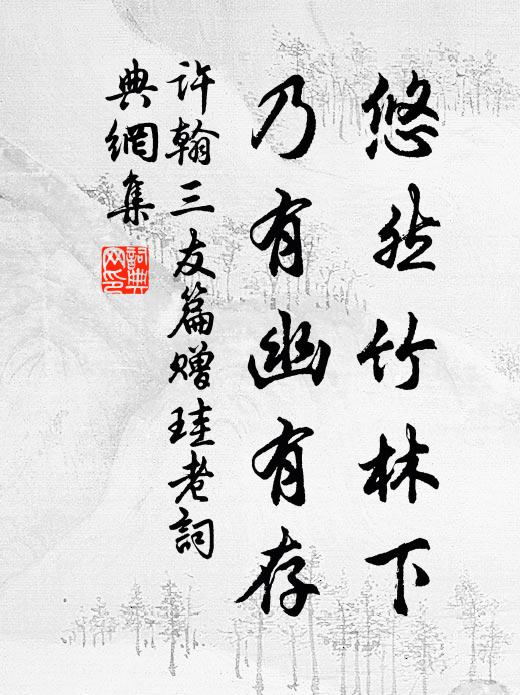 悠然竹林下
乃有幽有存
许翰三友篇赠珪老词
典網集
詞典
网印